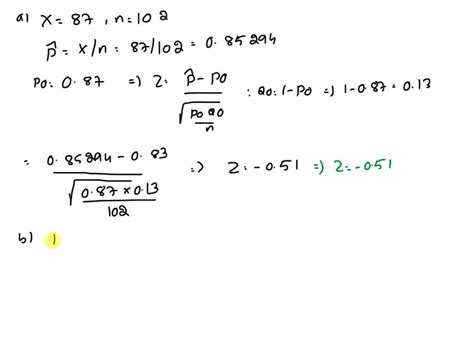 a) x = 87 , n = 102
p̂ = x/n = 87/102 = 0.85294
p0: 0.87 => z = p̂ - p0 / √(p0 q0 / n) : q0: 1-p0 => 1-0.87 = 0.13
= 0.85294 - 0.83 / √(0.87 × 0.13 / 102) => z = -0.51 => z = -0.51
b)